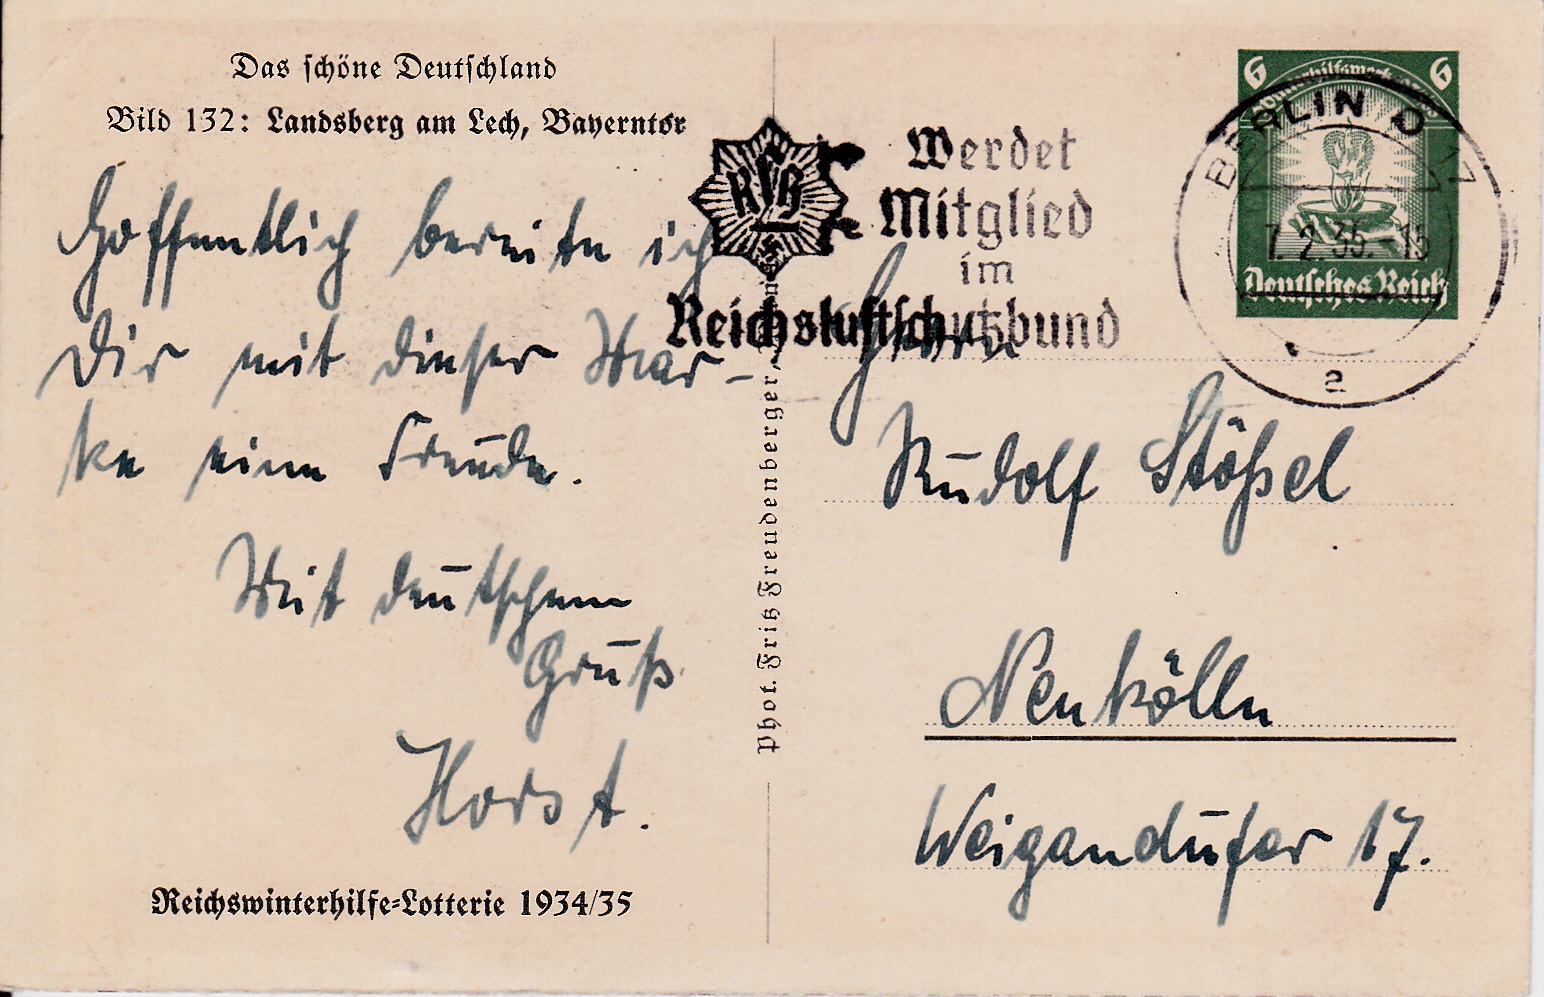 Das schöne Deutschland
Bild 132: Landsberg am Lech, Bayerntor
Hoffentlich bereite ich
Dir mit dieser Mar-
ke eine Freude.
Mit deutschem
Gruß
Horst.
Reichswinterhilfe-Lotterie 1934/35
Phot. Fritz Freudenberger
RLB
Werdet
Mitglied
im
Reichsluftschutzbund
6 6
Winterhilfswerk
Deutsches Reich
BERLIN O 17
7.2.35.-15
a
Herrn
Rudolf Stößel
Neukölln
Weigandufer 17.